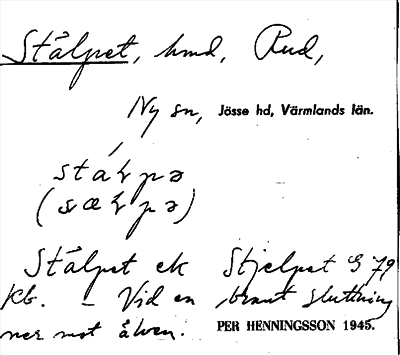 Stålpet, hmd, Rud,
Ny sn, Jösse hd, Värmlands län.
stáɽpə
(sæɽpə)
Stålpet ek Stjelpet G 79
Kb. – Vid en brant sluttning
ner mot älven. PER HENNINGSSON 1945.